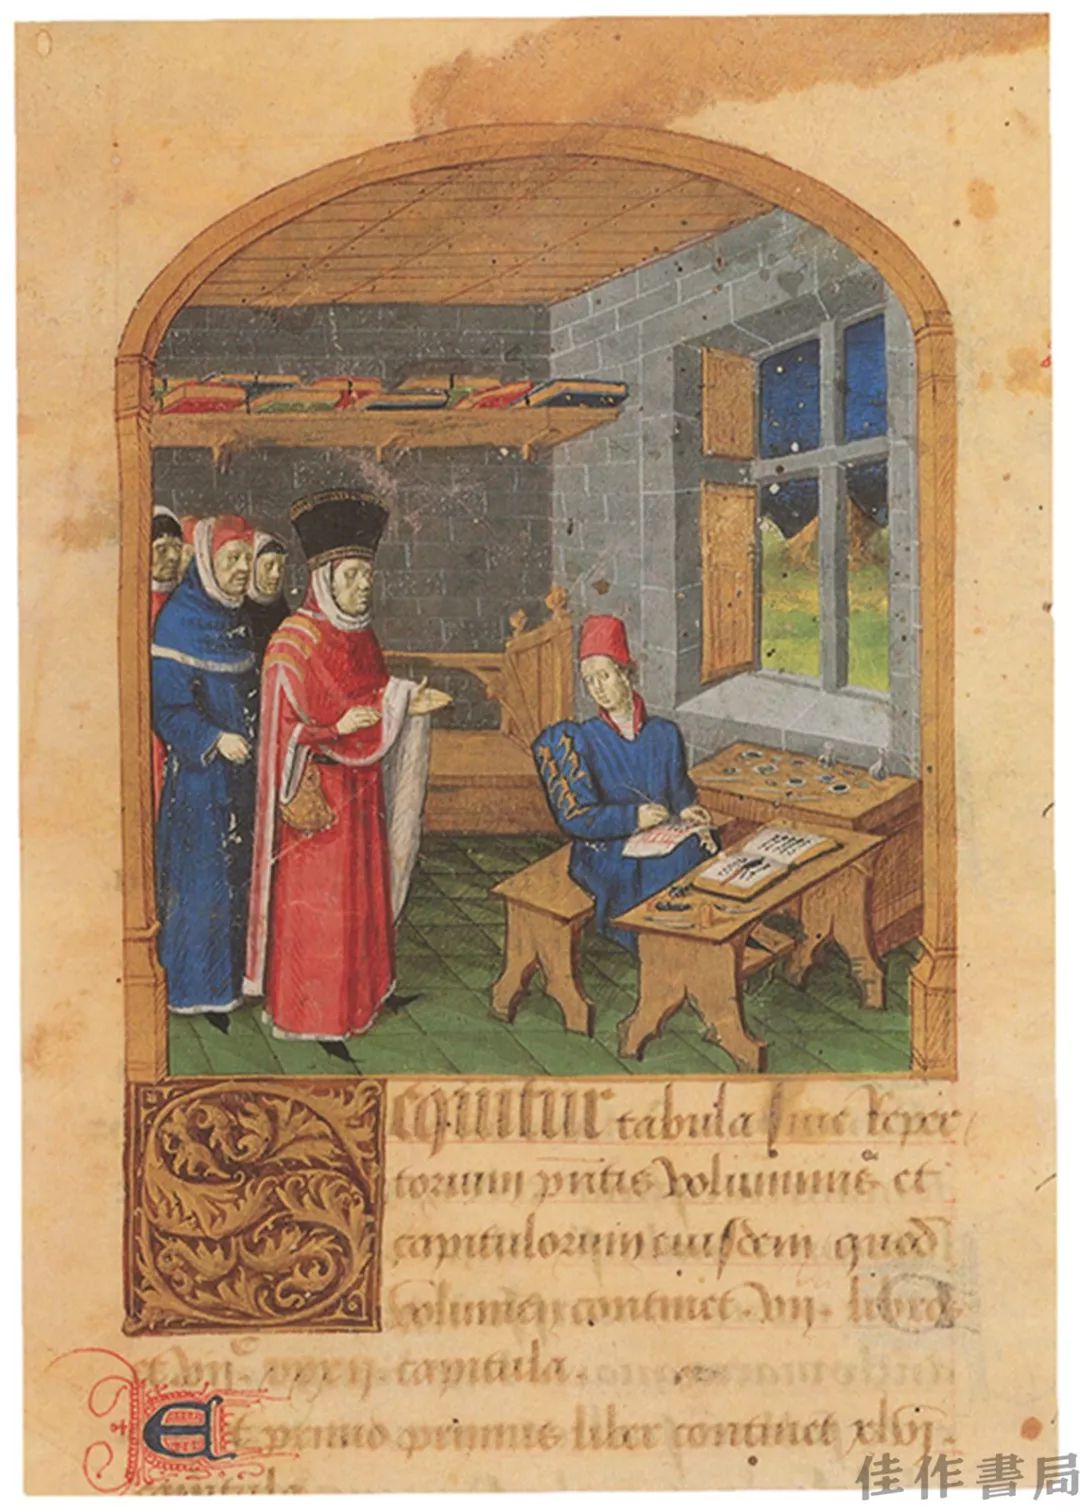 Sequitur tabula siue Reper
torium pñtis voluminis et
capitulorum eiusdem quod
volumen continet · vii · libros
et vii͛ xxxii · capitula ·
Et primo primus liber continet xlvi ·
capitula
佳作書局